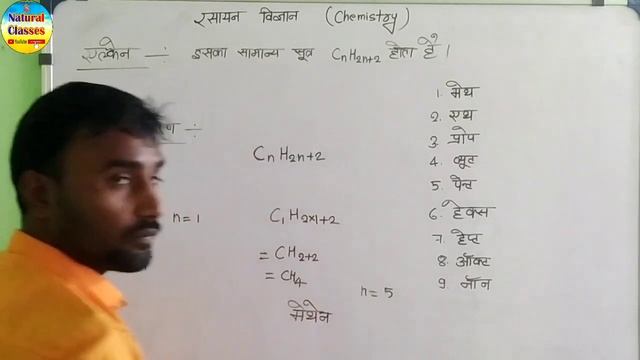 Natural
Classes
रसायन विज्ञान (Chemistry)
एल्केन —: इसका सामान्य सूत्र CnH2n+2 होता है।
CnH2n+2
n=1 C1H2x1+2
= CH2+2
= CH4
मेथेन
n=5
1. मेथ
2. एथ
3. प्रोप
4. ब्यूट
5. पेन्ट
6. हेक्स
7. हेप्ट
8. ऑक्ट
9. नॉन